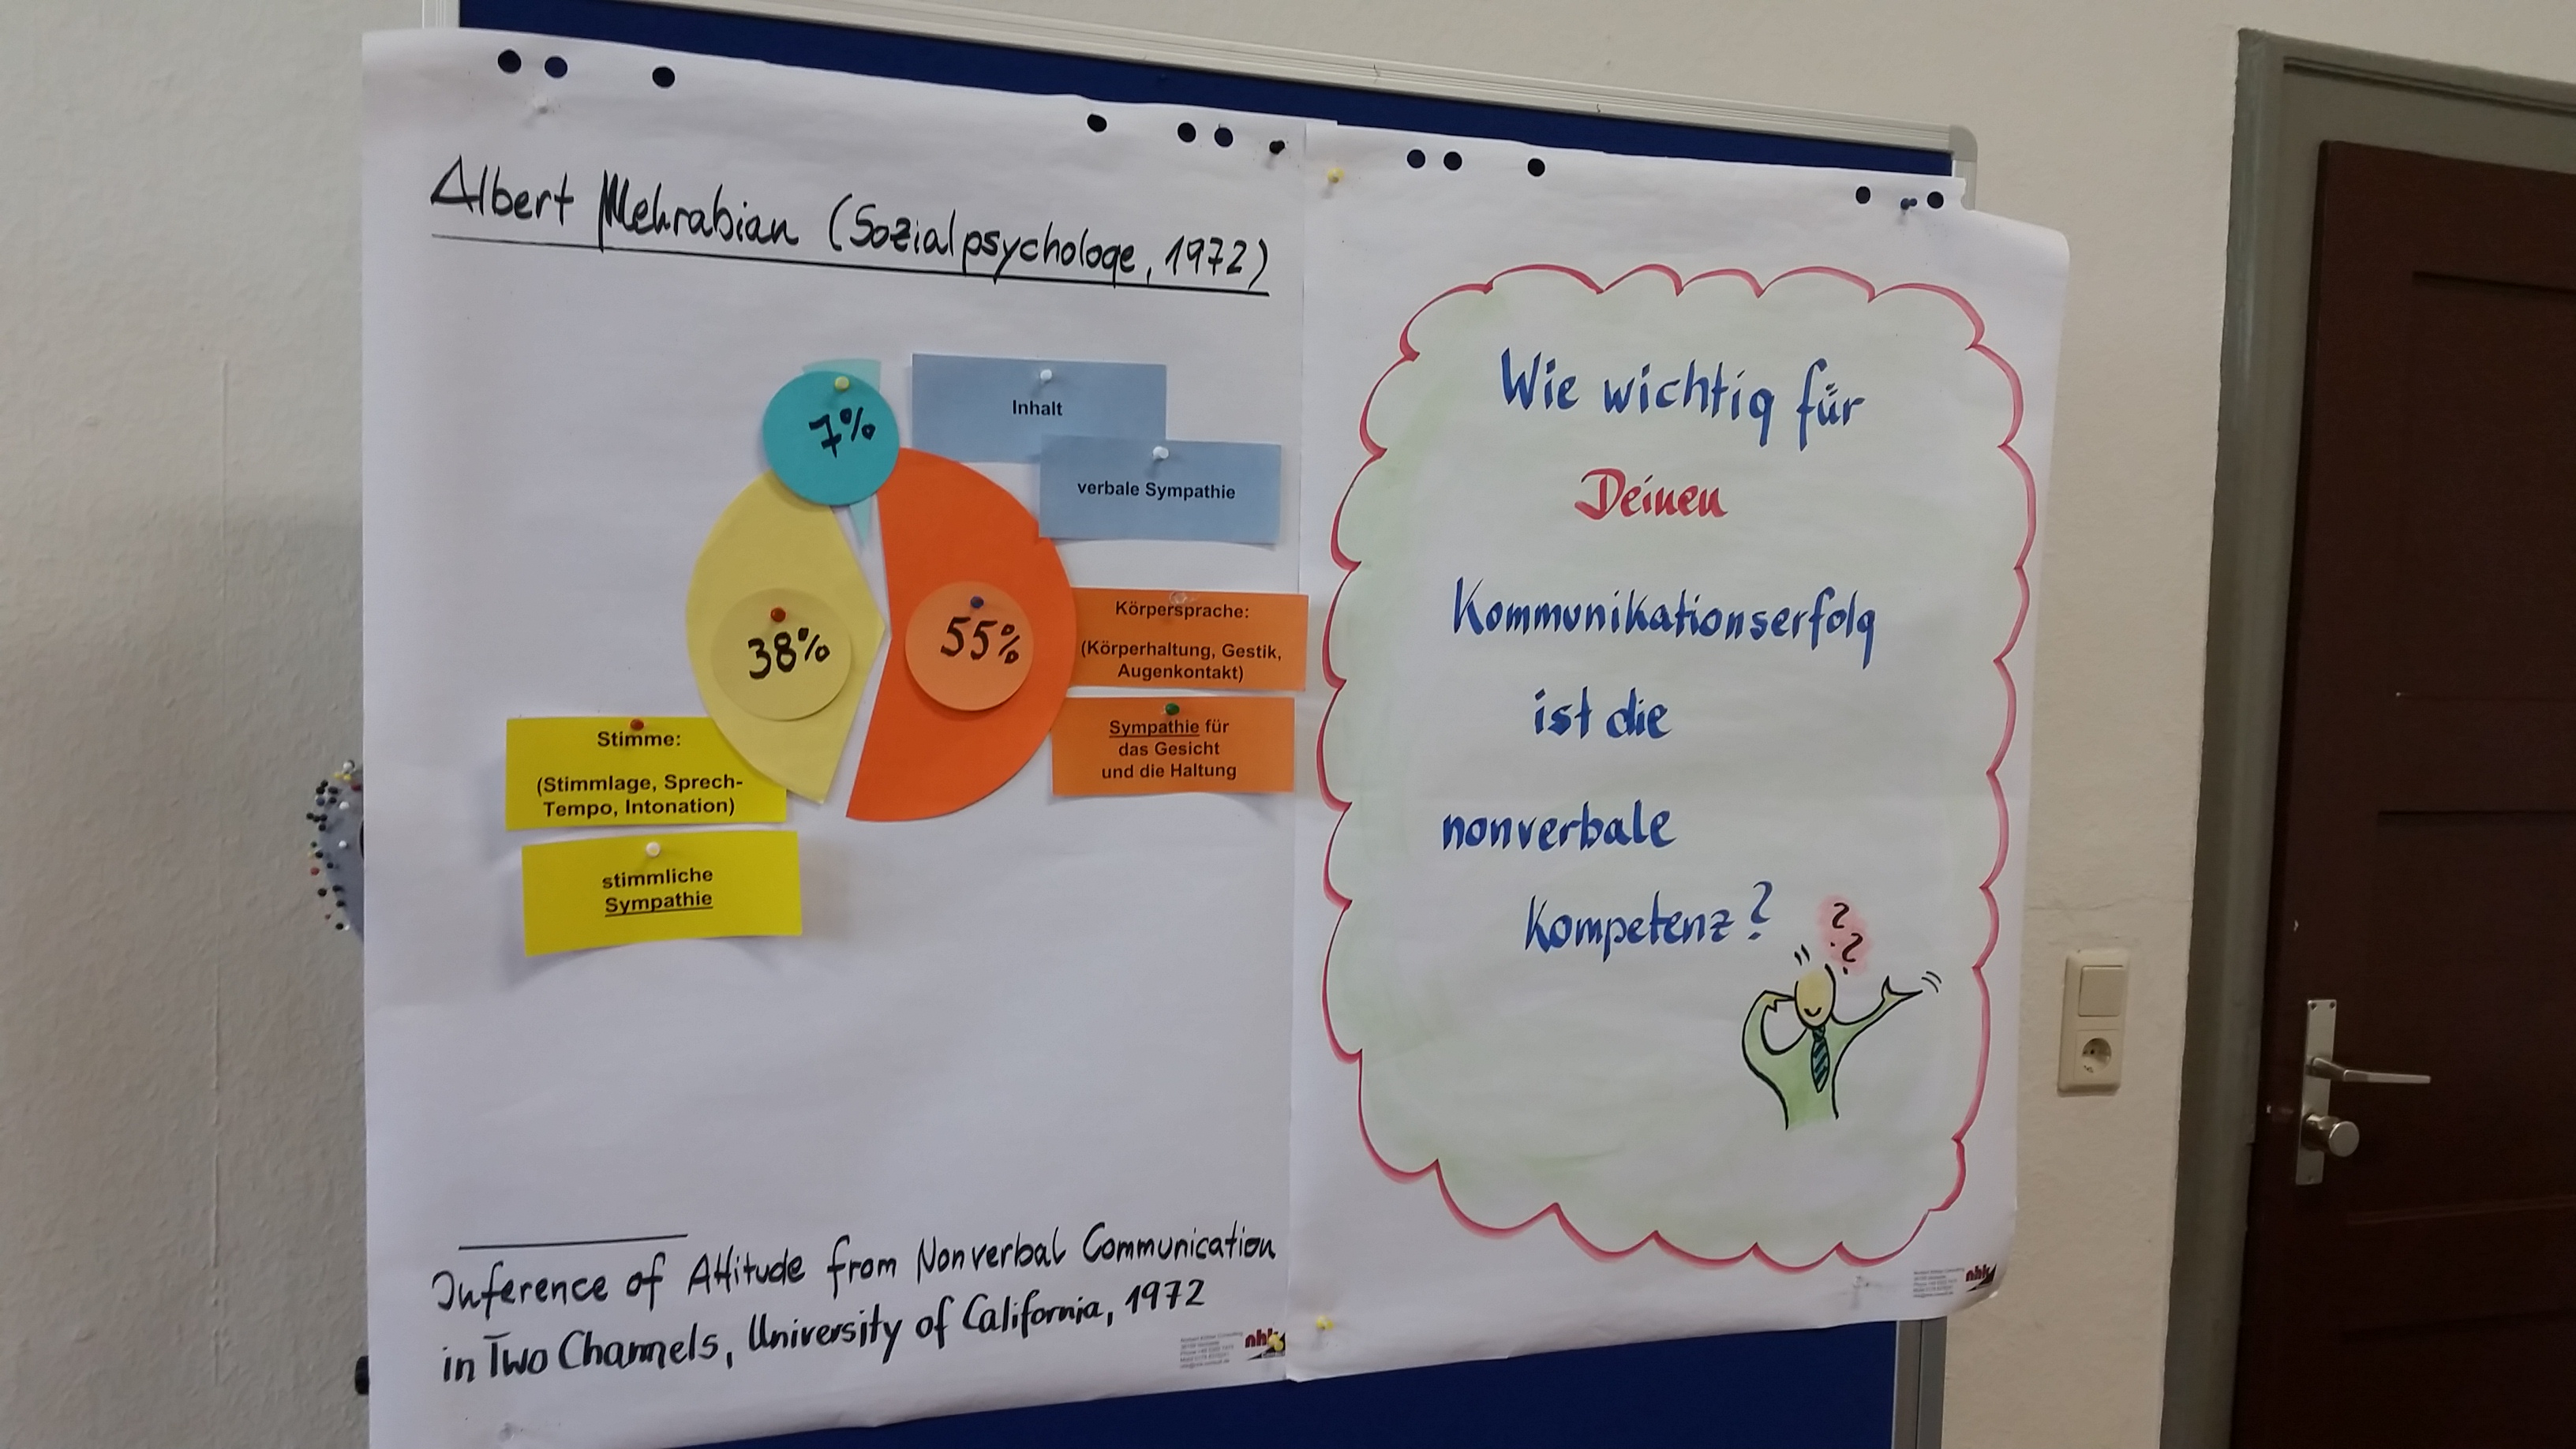 Albert Mehrabian (Sozialpsychologe, 1972)
7%
Inhalt
verbale Sympathie
38%
55%
Körpersprache:
(Körperhaltung, Gestik,
Augenkontakt)
Sympathie für
das Gesicht
und die Haltung
Stimme:
(Stimmlage, Sprech-
Tempo, Intonation)
stimmliche
Sympathie
Inference of Attitude from Nonverbal Communication
in Two Channels, University of California, 1972
nhk
Wie wichtig für
Deinen
Kommunikationserfolg
ist die
nonverbale
Kompetenz?
? ?
nhk